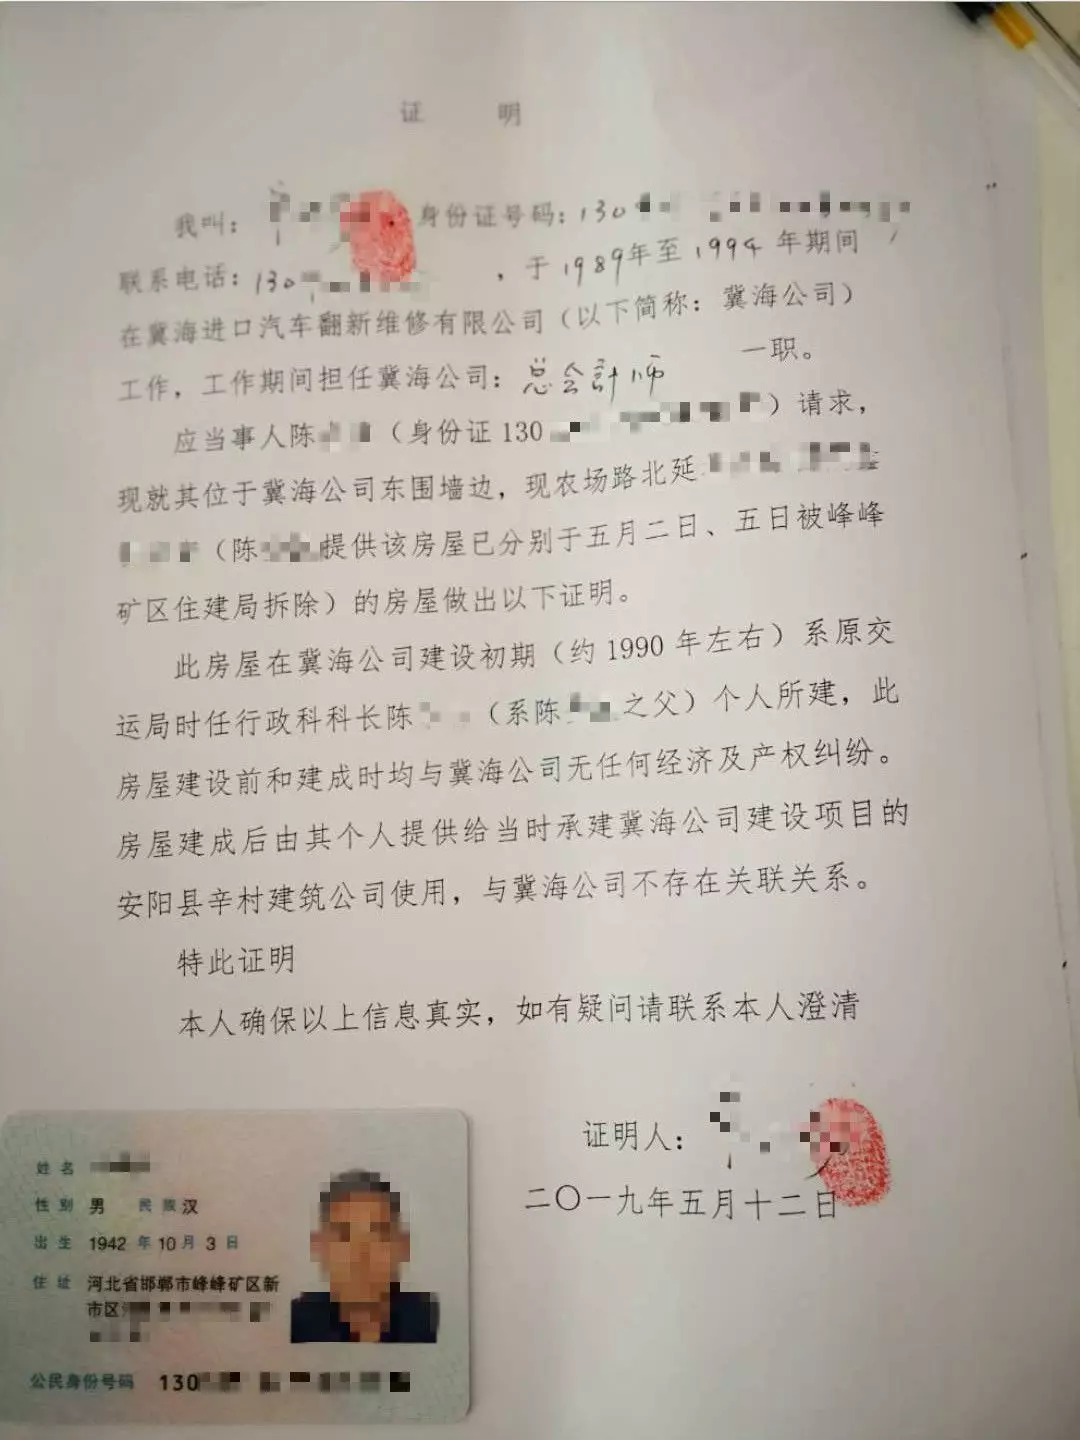 证 明
我叫: 身份证号码:130
联系电话:130 ,于1989年至1994年期间
在冀海进口汽车翻新维修有限公司(以下简称:冀海公司)
工作,工作期间担任冀海公司:总会計师 一职。
应当事人陈 (身份证130 )请求,
现就其位于冀海公司东围墙边,现农场路北延
(陈 提供该房屋已分别于五月二日、五日被峰峰
矿区住建局拆除)的房屋做出以下证明。
此房屋在冀海公司建设初期(约1990年左右)系原交
运局时任行政科科长陈 (系陈 之父)个人所建,此
房屋建设前和建成时均与冀海公司无任何经济及产权纠纷。
房屋建成后由其个人提供给当时承建冀海公司建设项目的
安阳县辛村建筑公司使用,与冀海公司不存在关联关系。
特此证明
本人确保以上信息真实,如有疑问请联系本人澄清
证明人:
二〇一九年五月十二日
姓名
性别 男 民族 汉
出生 1942 年 10 月 3 日
住址 河北省邯郸市峰峰矿区新
市区
公民身份号码 130